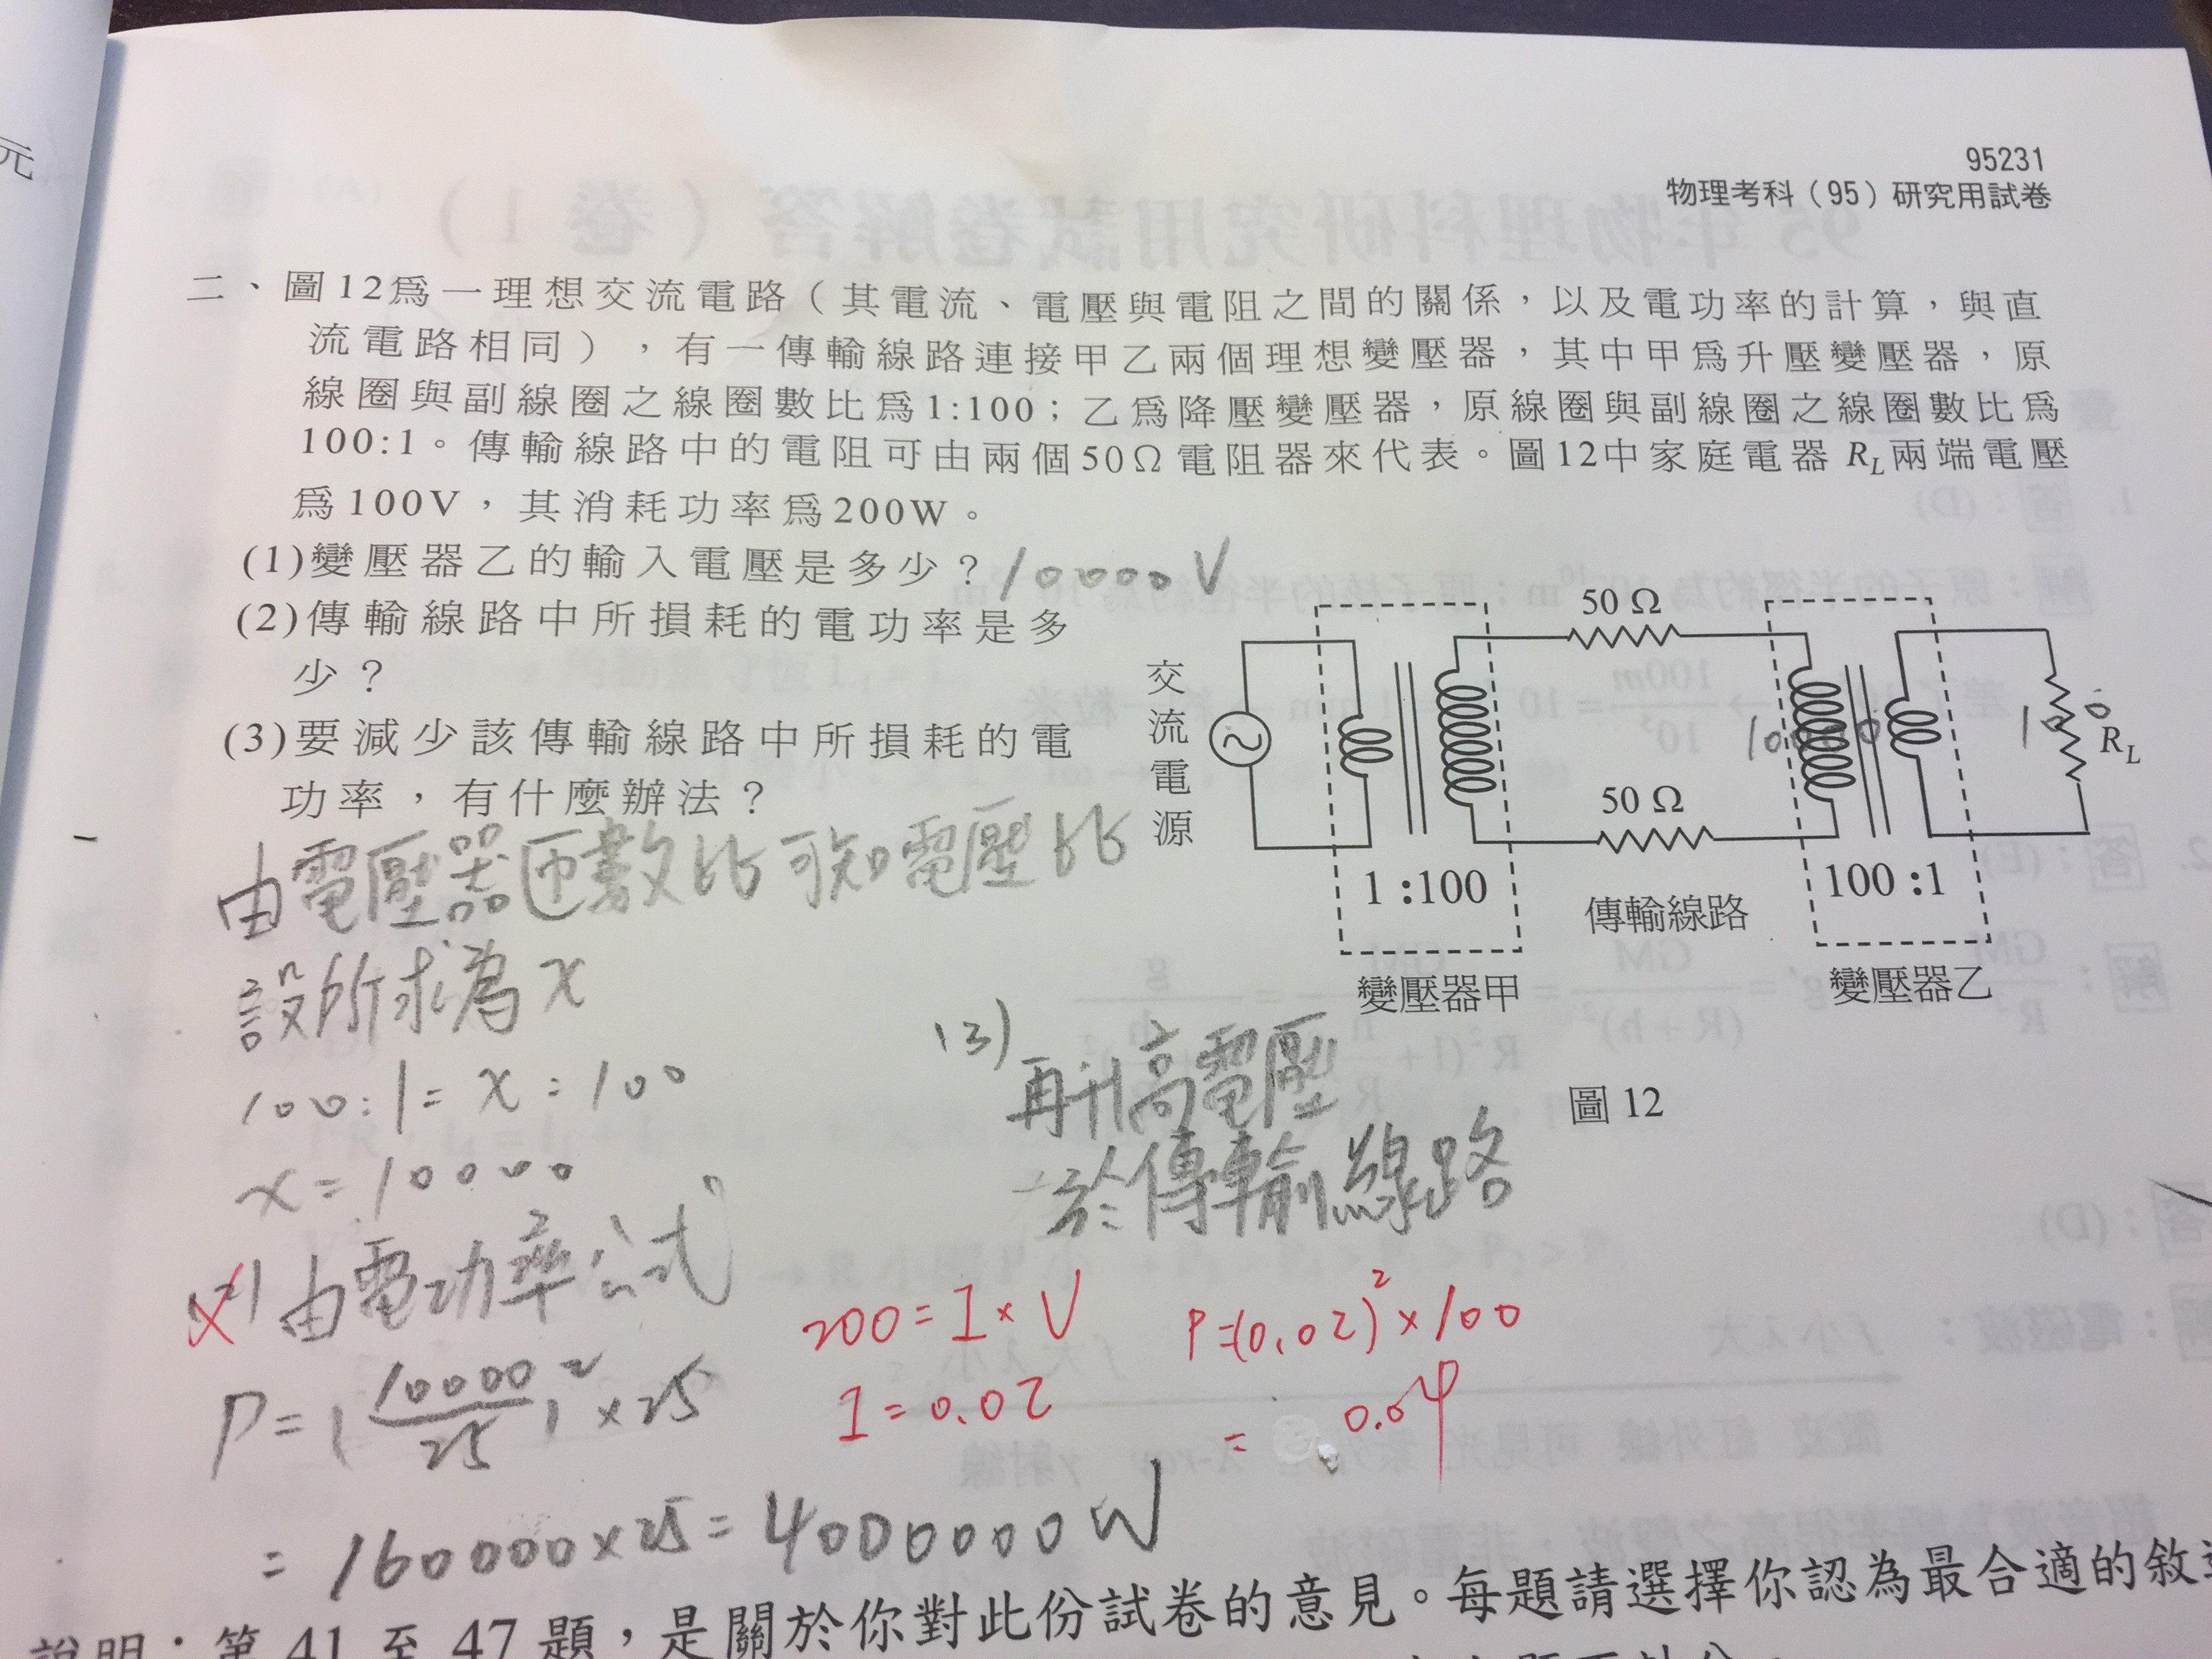 元
95231
物理考科(95)研究用試卷
二、圖12為一理想交流電路(其電流、電壓與電阻之間的關係,以及電功率的計算,與直
流電路相同),有一傳輸線路連接甲乙兩個理想變壓器,其中甲為升壓變壓器,原
線圈與副線圈之線圈數比為1:100;乙為降壓變壓器,原線圈與副線圈之線圈數比為
100:1。傳輸線路中的電阻可由兩個50Ω電阻器來代表。圖12中家庭電器 RL兩端電壓
為100V,其消耗功率為200W。
(1)變壓器乙的輸入電壓是多少?10000V
(2)傳輸線路中所損耗的電功率是多
少?
(3)要減少該傳輸線路中所損耗的電
功率,有什麼辦法?
交流電源
50 Ω
50 Ω
10000
100
RL
1:100
100:1
傳輸線路
變壓器甲
變壓器乙
圖 12
由電壓器匝數比可知電壓比
設所求為 x
100:1=x:100
x=10000
(3)
再升高電壓
於傳輸線路
由電功率公式
P=(10000/25)²×25
=160000×25=4000000W
200=I×V
I=0.02
P=(0.02)²×100
=0.04
說明:第 41 至 47 題,是關於你對此份試卷的意見。每題請選擇你認為最合適的敘